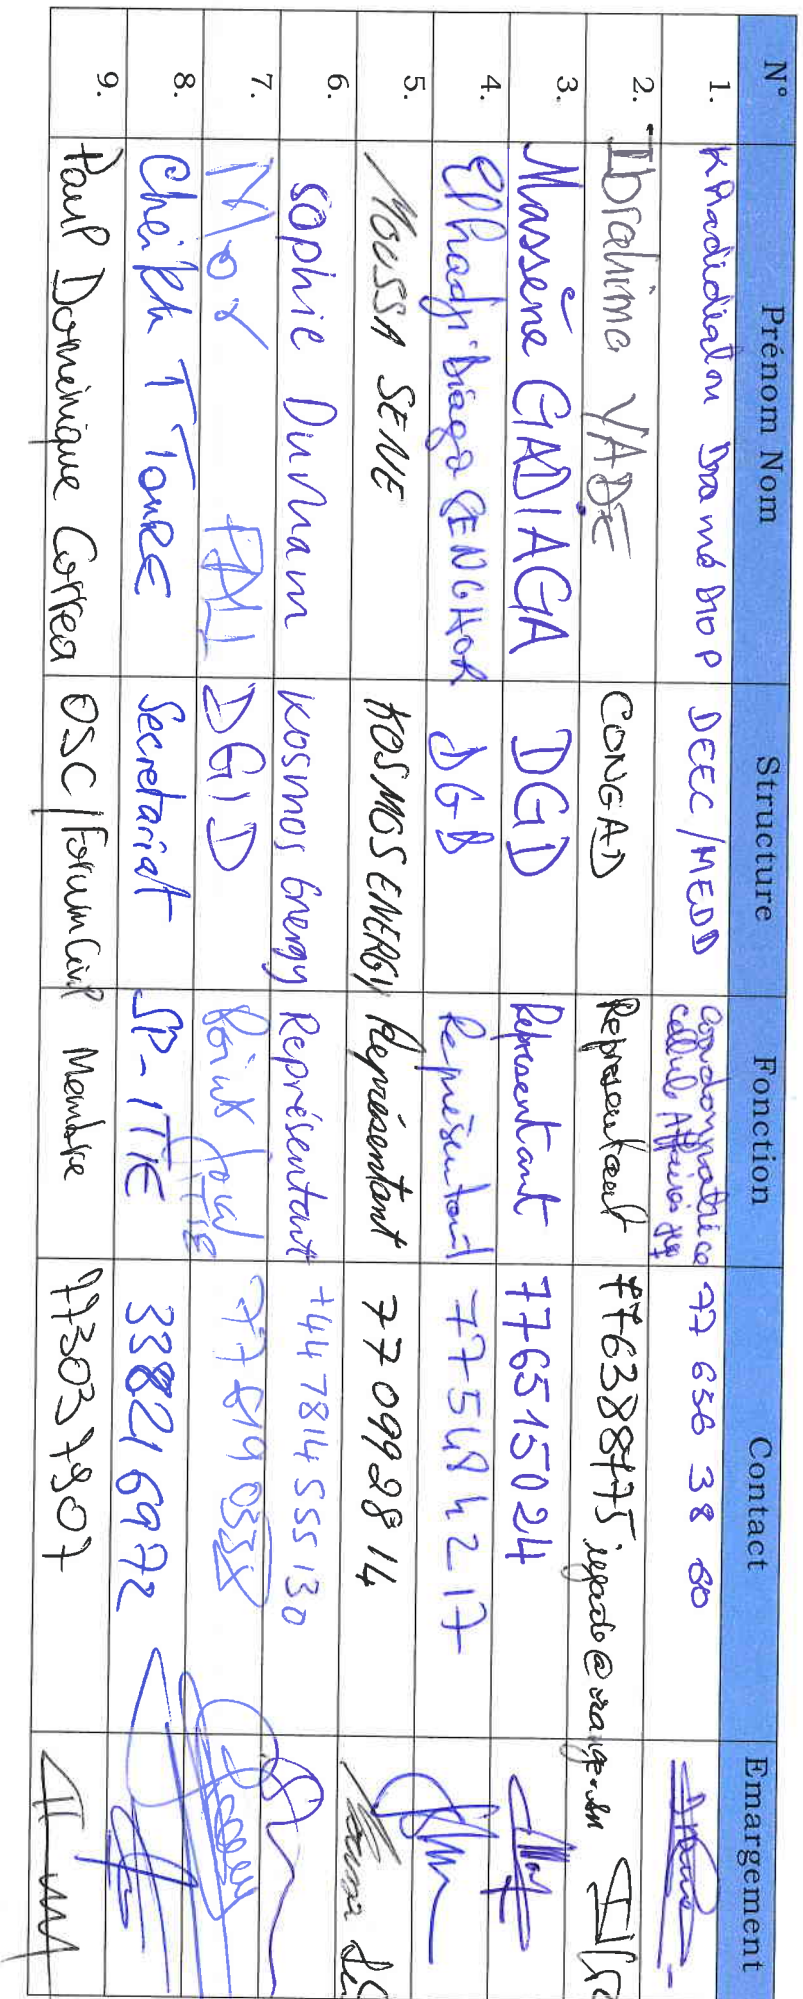 N° Prénom Nom Structure Fonction Contact Emargement
1. Khadidiatou Dramé DIOP DEEC/MEDD Coordonnatrice cellule Affaires 77 636 38 60
2. Ibrahima YADE CONGAD Représentant 776388475 iyade@orange.sn
3. Massène GADIAGA DGD Représentant 776515024
4. Elhadji SENGHOR DGB Représentant 775484217
5. MOUSSA SENE KOSMOS ENERGY Représentant 770992814
6. Sophie Dumann Kosmos Energy Représentant +447814555130
7. Mor FALL DGID Point focal ITIE 77 819 0338
8. Cheikh T TOURE Secretariat SP-ITIE 338216972
9. Paul Dominique Correa OSC/Forum Civil Membre 773037907